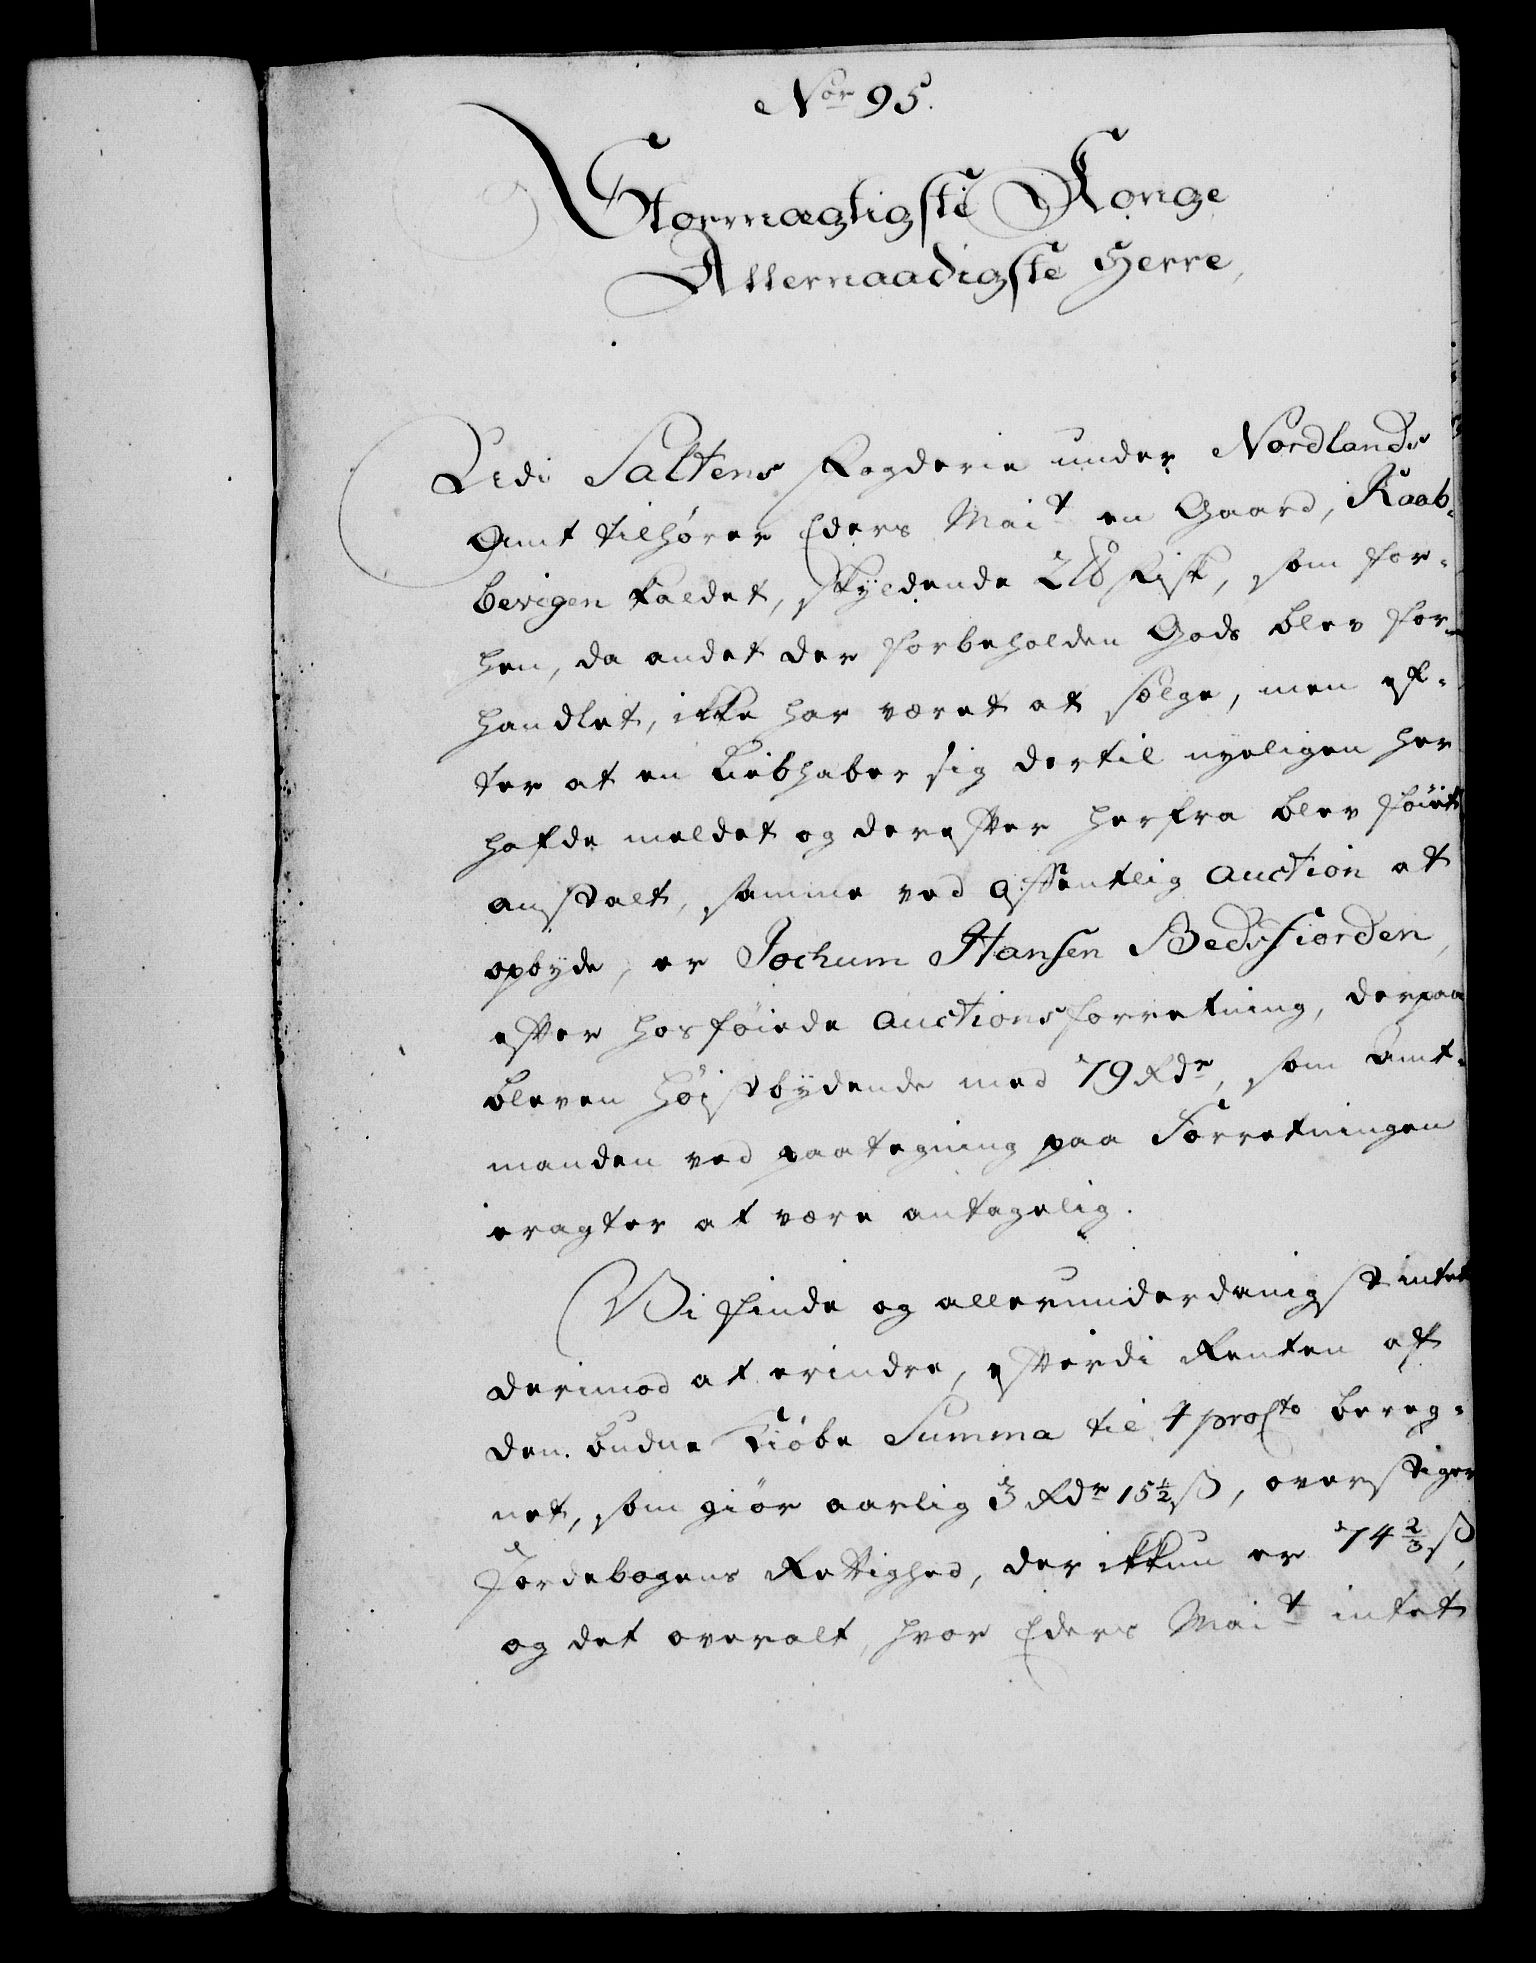 Nor 95.
Stormægtigste Konge
Allernaadigste Herre,
Udi Saltens Fogderie under Nordlands
Amt tilhører Eders Mait en Gaard, Kaab-
bevigen kaldet, skyldende 2 ℔ Fisk, som for-
hen, da andet der forbeholden Gods blev for-
handlet, ikke har været at sælge, men ef-
ter at en Liebhaber sig dertil nyeligen her
hafde meldet og derefter herfra blev føiet
anstalt, samme ved offentlig Auction at
opbyde, er Jochum Hansen Bedsfiorden,
efter hosføiede Auctions forretning, derpaa
bleven høistbydende med 79 Rdr, som Amt-
manden ved paategning paa Forretningen
eragter at være antagelig.
Vi finde og allerunderdanigst intet
derimod at erindre, efterdi Renten af
den budne Kiøbe Summa til 4 proCto bereg-
net, som giør aarlig 3 Rdr 15½ ß, overstiger
Jordebogens Rettighed, der ikkun er 74 2/3 ß,
og det overalt, hvor Eders Mait intet